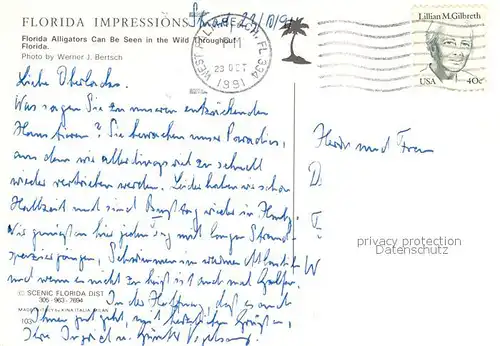 FLORIDA IMPRESSIONS
Florida Alligators Can Be Seen in the Wild Throughout
Florida.
Photo by Werner J. Bertsch
WEST PALM BEACH, FL 334
PM
23 OCT
1991
Lillian M. Gilbreth
USA 40c
Liebe
Was sagen Sie zu unseren entzückenden
Haustieren? Sie bewachen unser Paradies,
aus dem wir allerdings viel zu schnell
wieder vertrieben werden. Leider haben wir schon
Halbzeit und sind wieder in
Wir genießen hier jeden Tag mit langen Strand-
spaziergängen, Schwimmen im warmen Atlantik
und wenn es nicht zu heiß ist auch mal Golfen.
In der Hoffnung, daß es auch
Ihnen gut geht, mit herzlichen Grüßen,
Ihre Ingrid u. Günter
Herrn und Frau
D
W
privacy protection
Datenschutz
© SCENIC FLORIDA DIST
305-963-7694
103